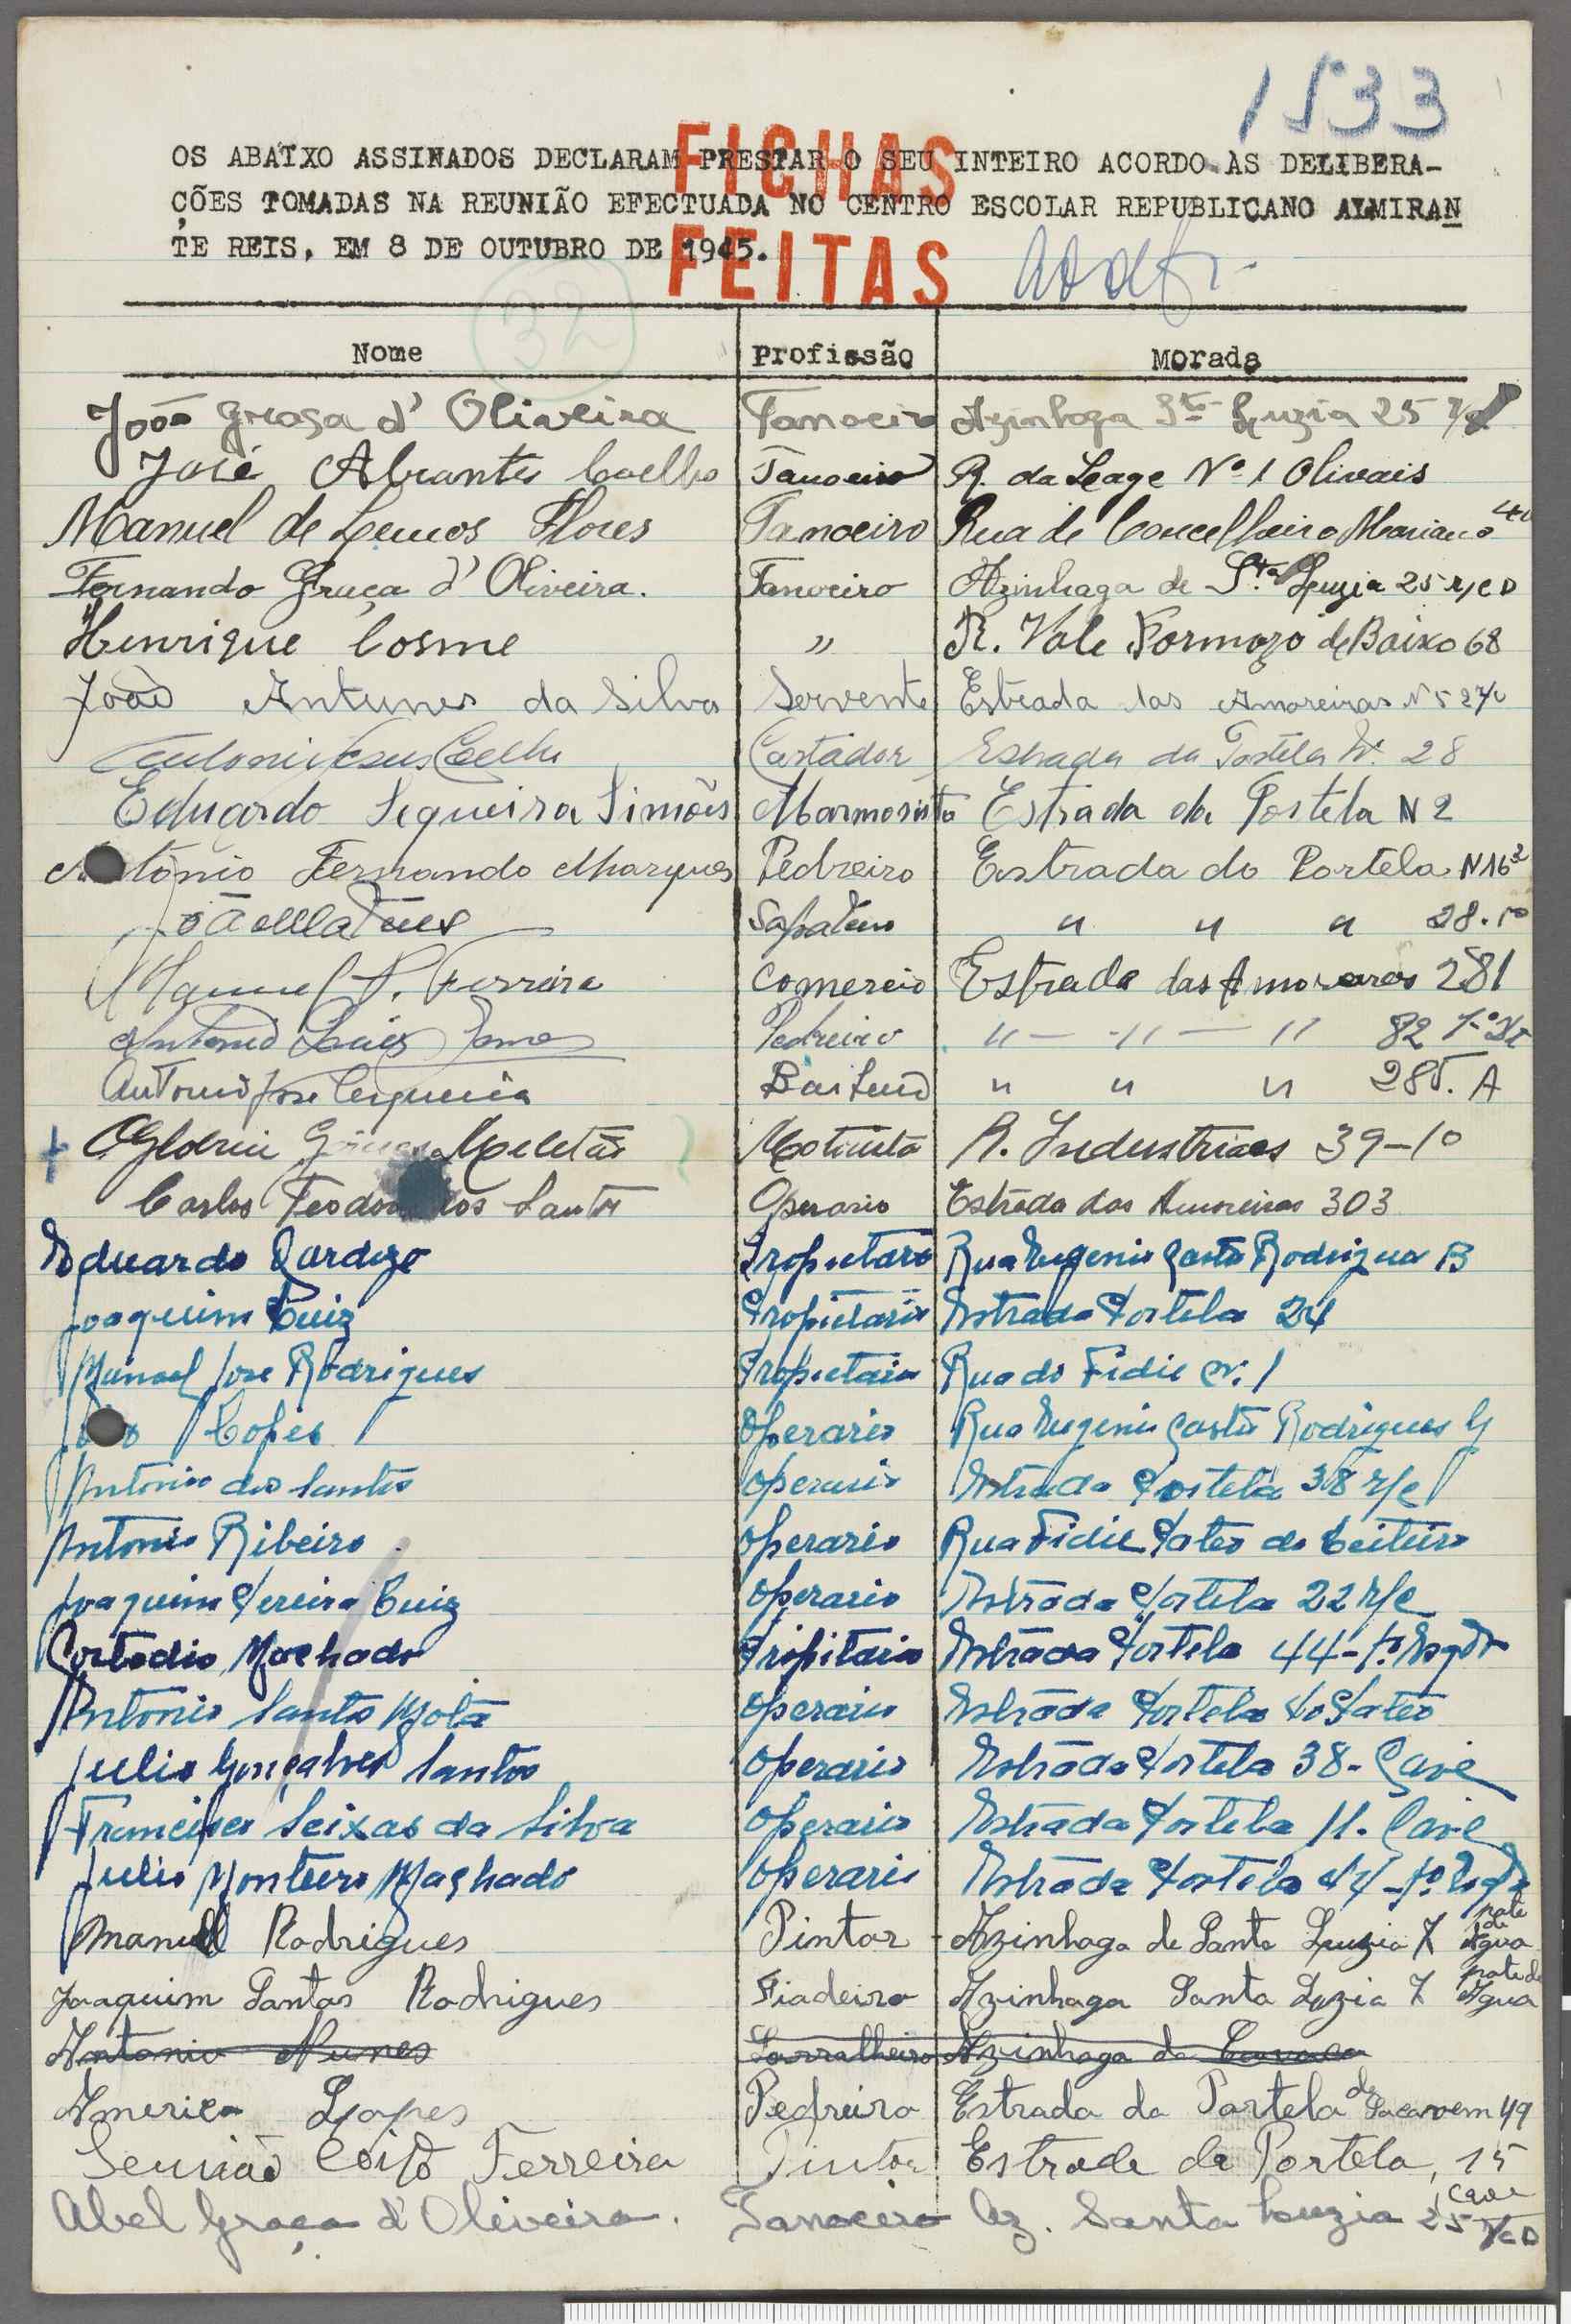 1533
FICHAS
OS ABAIXO ASSINADOS DECLARAM PRESTAR O SEU INTEIRO ACORDO ÀS DELIBERA-
ÇÕES TOMADAS NA REUNIÃO EFECTUADA NO CENTRO ESCOLAR REPUBLICANO ALMIRAN
TE REIS, EM 8 DE OUTUBRO DE 1945.
FEITAS
32
Nome Profissão Morada
João Graça d' Oliveira Tanoeiro Azinhaga Sta Luzia 25
José Abrantes Coelho Tanoeiro R. da Lage Nº 1 Olivais
Manuel de Lemos Flores Tanoeiro Rua de Concelheiro Mariano
Fernando Graça d' Oliveira. Tanoeiro Azinhaga de Sta Luzia 25 r/c D
Henrique Cosme " R. Vale Formozo de Baixo 68
João Antunes da Silva Servente Estrada das Amoreiras N 52 r/c
Antonio Jesus Coelho Cortador Estrada da Portela Nº 28
Eduardo Sequeira Simões Marmorista Estrada da Portela N 2
António Fernando Marques Pedreiro Estrada da Portela N 16
João Mateus Sapateiro " " " 28-1º
Manuel P. Ferreira Comercio Estrada das Amoreiras 281
Antonio Luiz Pedreiro " — " — " 82 1º
Antonio José Cerqueira " " " 285. A
Motorista R. Industriaes 39-1º
Carlos Teodoro dos Santos Operario Estrada das Amoreiras 303
Eduardo Cardozo Propietario Rua Eugenio Castro Rodrigues B
Joaquim Luiz Propietario Estrada Portela 24
Manuel José Rodrigues Propietario Rua do Fidié Nº 1
João Lopes Operario Rua Eugenio Castro Rodrigues
Antonio dos Santos Operario Estrada Portela 38 r/c
Antonio Ribeiro Operario Rua Fidié Pateo do Leiteiro
Joaquim Pereira Luiz Operario Estrada Portela 22 r/c
Costodio Machado Propitario Estrada Portela 44-1º Esqdo
Antonio Santos Mota Operario Estrada Portela Pateo
Julio Gonçalves Santos Operario Estrada Portela 38- Cave
Francisco Seixas da Silva Operario Estrada Portela 11. Cave
Julio Monteiro Machado Operario Estrada Portela 44-1º Esqdo
Manuel Rodrigues Pintor Azinhaga de Santa Luzia 7 pate de Agua
Joaquim Santos Rodrigues Fiadeiro Azinhaga Santa Luzia 7 pate de Agua
Antonio Nunes Sarralheiro Azinhaga da
Americo Lopes Pedreiro Estrada da Portela de Sacavem 49
Couto Ferreira Pintor Estrada da Portela, 15 cave
Abel Graça d'Oliveira. Tanoeiro Az. Santa Luzia 25 r/c D